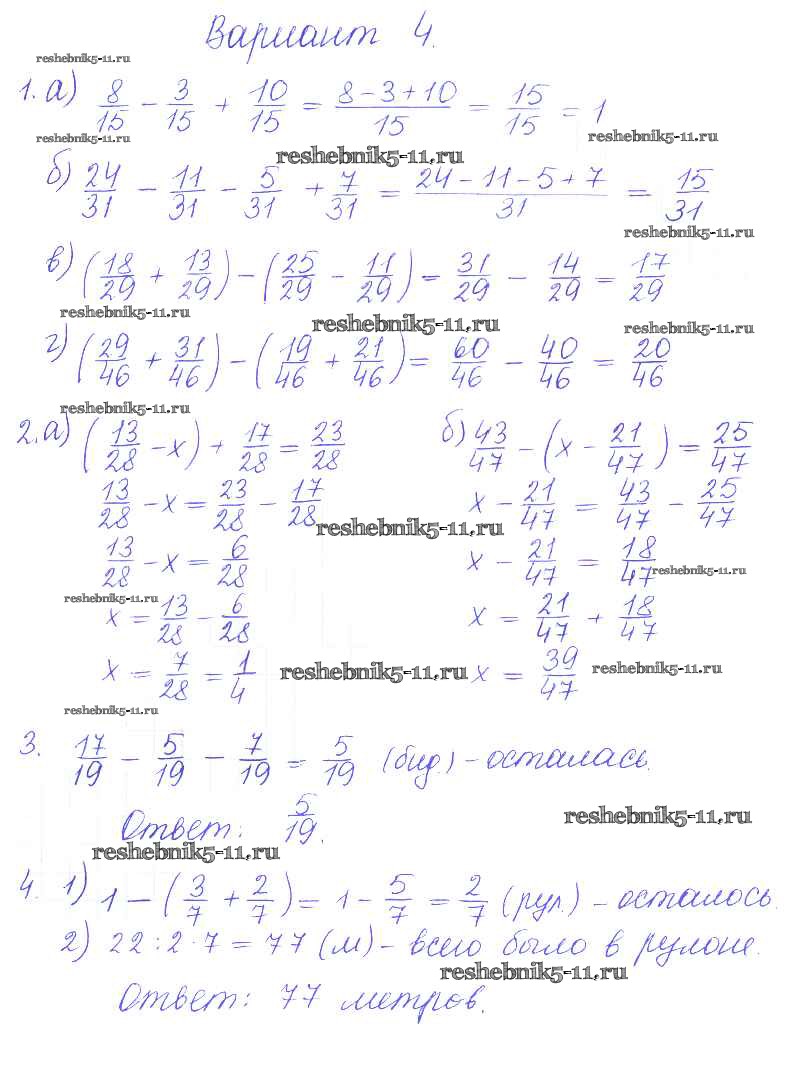 Вариант 4.
reshebnik5-11.ru
1. а) 8/15 − 3/15 + 10/15 = (8 − 3 + 10)/15 = 15/15 = 1
reshebnik5-11.ru
reshebnik5-11.ru
reshebnik5-11.ru
б) 24/31 − 11/31 − 5/31 + 7/31 = (24 − 11 − 5 + 7)/31 = 15/31
reshebnik5-11.ru
в) (18/29 + 13/29) − (25/29 − 11/29) = 31/29 − 14/29 = 17/29
reshebnik5-11.ru
reshebnik5-11.ru
reshebnik5-11.ru
г) (29/46 + 31/46) − (19/46 + 21/46) = 60/46 − 40/46 = 20/46
reshebnik5-11.ru
2. а) (13/28 − x) + 17/28 = 23/28
13/28 − x = 23/28 − 17/28
13/28 − x = 6/28
x = 13/28 − 6/28
x = 7/28 = 1/4
б) 43/47 − (x − 21/47) = 25/47
x − 21/47 = 43/47 − 25/47
x − 21/47 = 18/47
x = 21/47 + 18/47
x = 39/47
reshebnik5-11.ru
reshebnik5-11.ru
reshebnik5-11.ru
reshebnik5-11.ru
reshebnik5-11.ru
reshebnik5-11.ru
3. 17/19 − 5/19 − 7/19 = 5/19 (бид.) − осталась.
Ответ: 5/19.
reshebnik5-11.ru
reshebnik5-11.ru
4. 1) 1 − (3/7 + 2/7) = 1 − 5/7 = 2/7 (рул.) − осталось.
2) 22 : 2 · 7 = 77 (м) − всего было в рулоне.
reshebnik5-11.ru
Ответ: 77 метров.